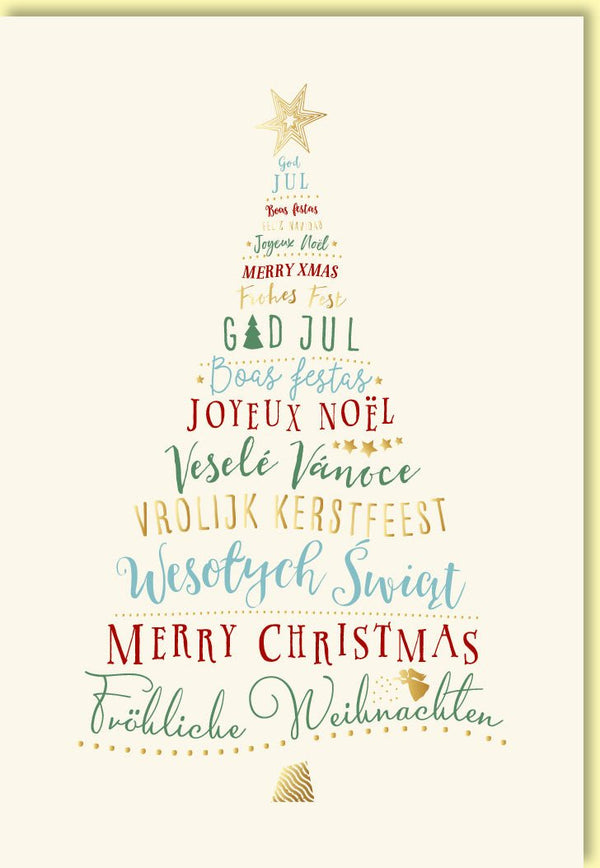 God
JUL
Boas festas
FELIZ NAVIDAD
Joyeux Noël
MERRY XMAS
Frohes Fest
GOD JUL
Boas festas
JOYEUX NOËL
Veselé Vánoce
VROLIJK KERSTFEEST
Wesołych Świąt
MERRY CHRISTMAS
Fröhliche Weihnachten